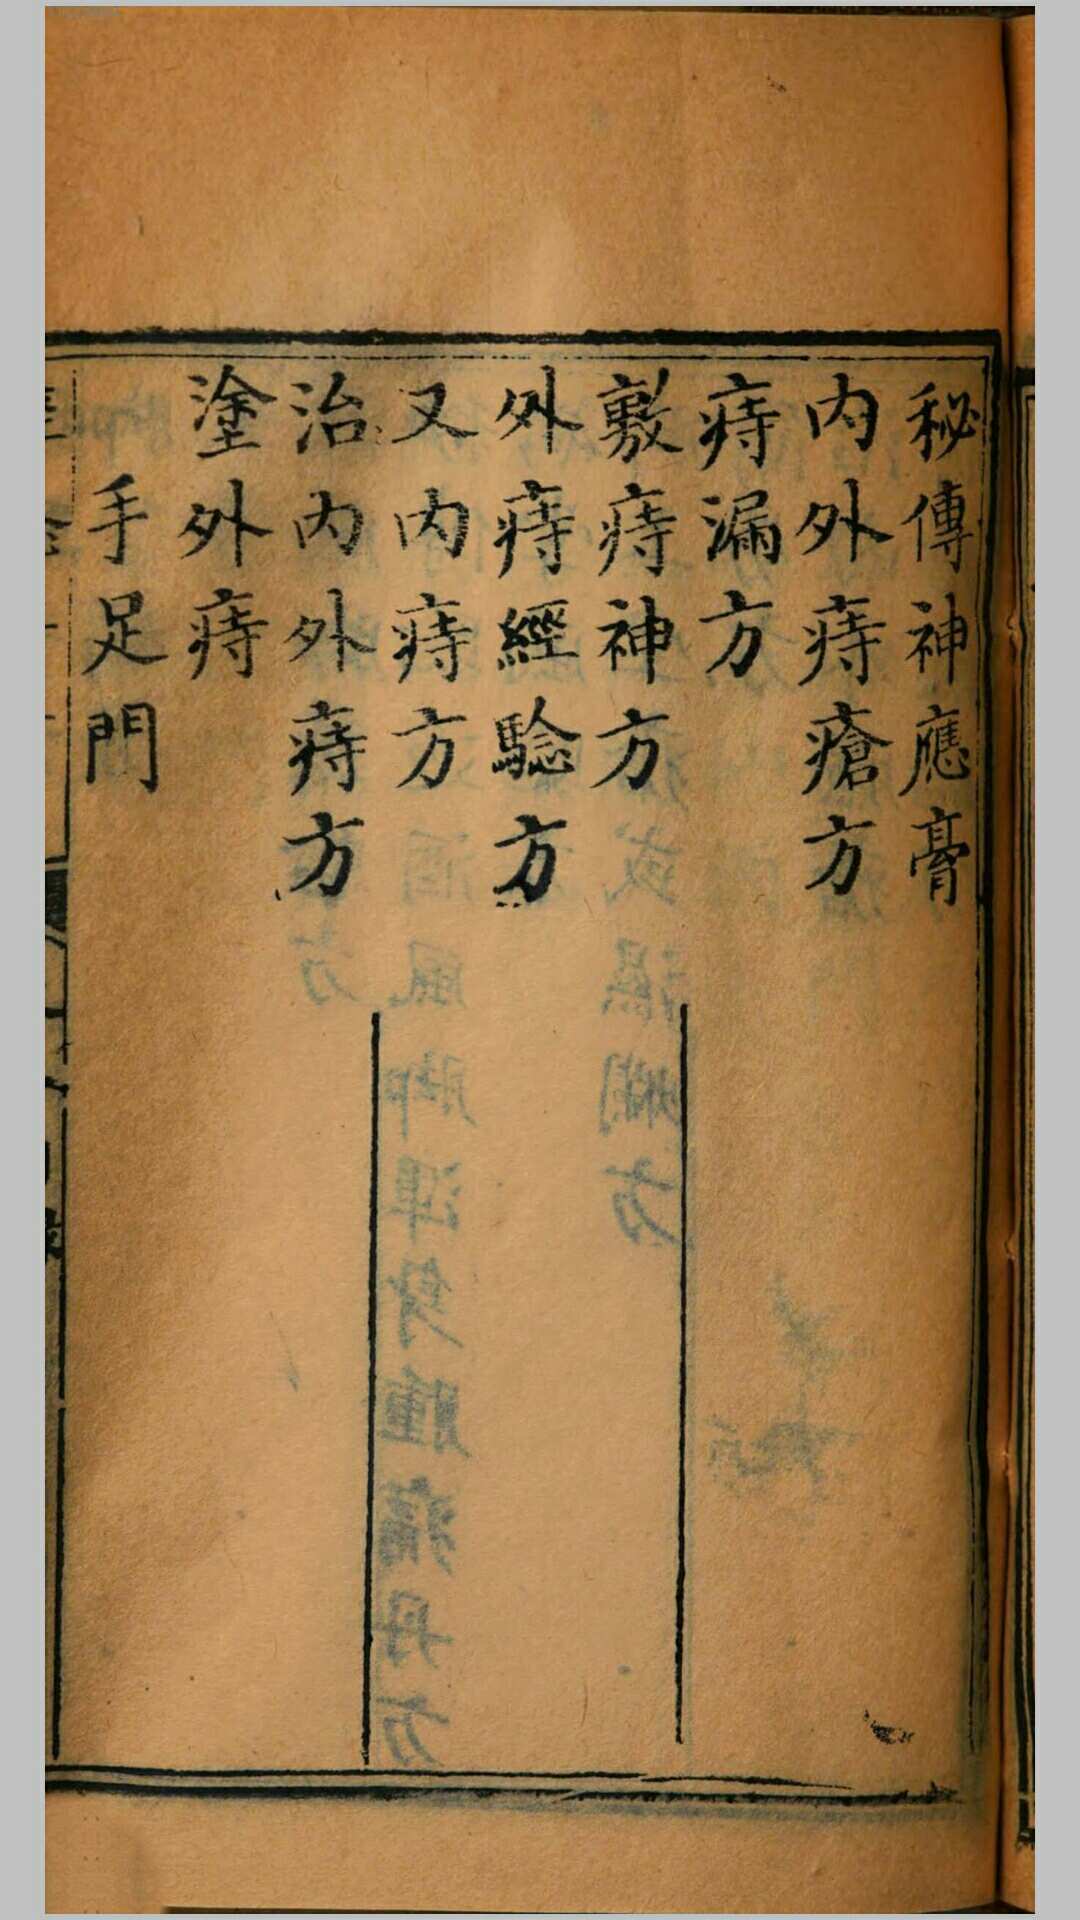 秘傳神應膏
內外痔瘡方
痔漏方
敷痔神方
外痔經驗方
又內痔方
治內外痔方
塗外痔
手足門